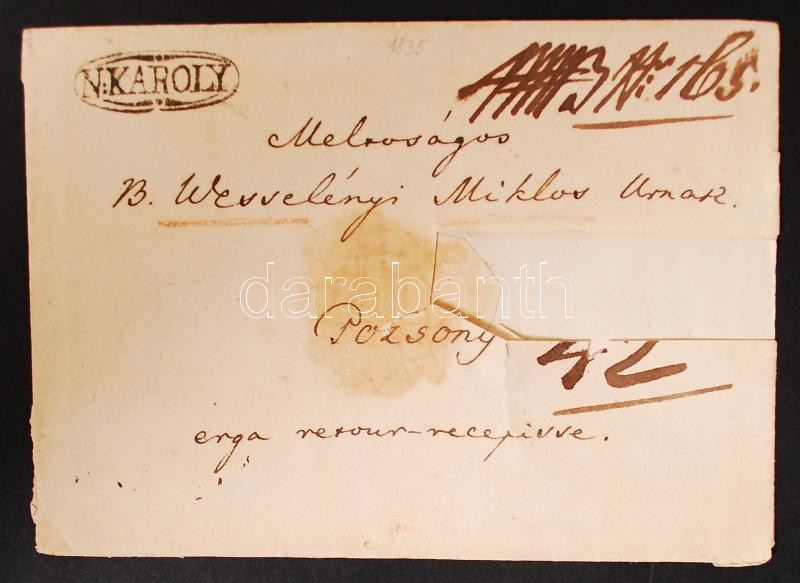 1835
N:KAROLY
Nr: 165.
Méltoságos
B. Wesselényi Miklos Urnak.
darabanth
Pozsony
42
erga retour-recepisse.